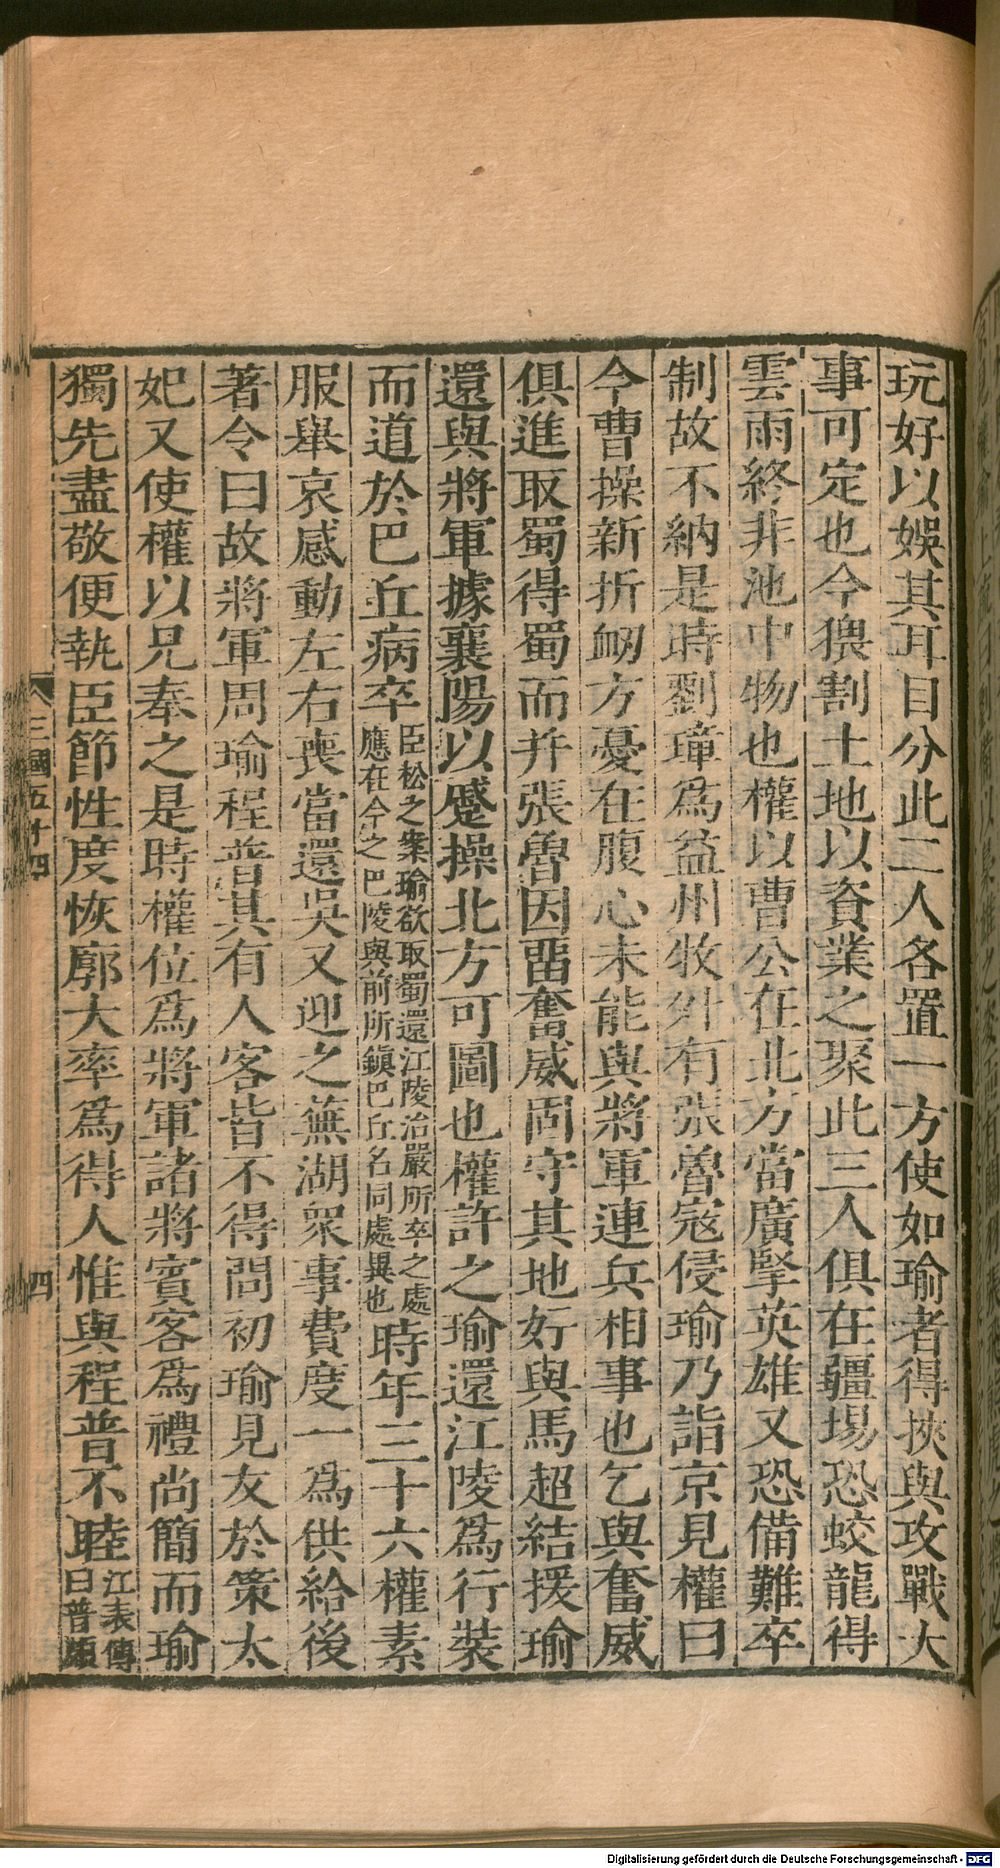 玩好以娛其耳目分此二人各置一方使如瑜者得挾與攻戰大
事可定也今猥割土地以資業之聚此三人俱在疆埸恐蛟龍得
雲雨終非池中物也權以曹公在北方當廣擥英雄又恐備難卒
制故不納是時劉璋爲益州牧外有張魯寇侵瑜乃詣京見權曰
今曹操新折衂方憂在腹心未能與將軍連兵相事也乞與奮威
俱進取蜀得蜀而并張魯因畱奮威固守其地好與馬超結援瑜
還與將軍據襄陽以蹙操北方可圖也權許之瑜還江陵爲行裝
而道於巴丘病卒臣松之案瑜欲取蜀還江陵治嚴所卒之處應在今之巴陵與前所鎮巴丘名同處異也時年三十六權素
服舉哀感動左右喪當還吳又迎之蕪湖衆事費度一爲供給後
著令曰故將軍周瑜程普其有人客皆不得問初瑜見友於策太
妃又使權以兄奉之是時權位爲將軍諸將賓客爲禮尚簡而瑜
獨先盡敬便執臣節性度恢廓大率爲得人惟與程普不睦江表傳曰普頗
三國五十四
四
Digitalisierung gefördert durch die Deutsche Forschungsgemeinschaft - DFG